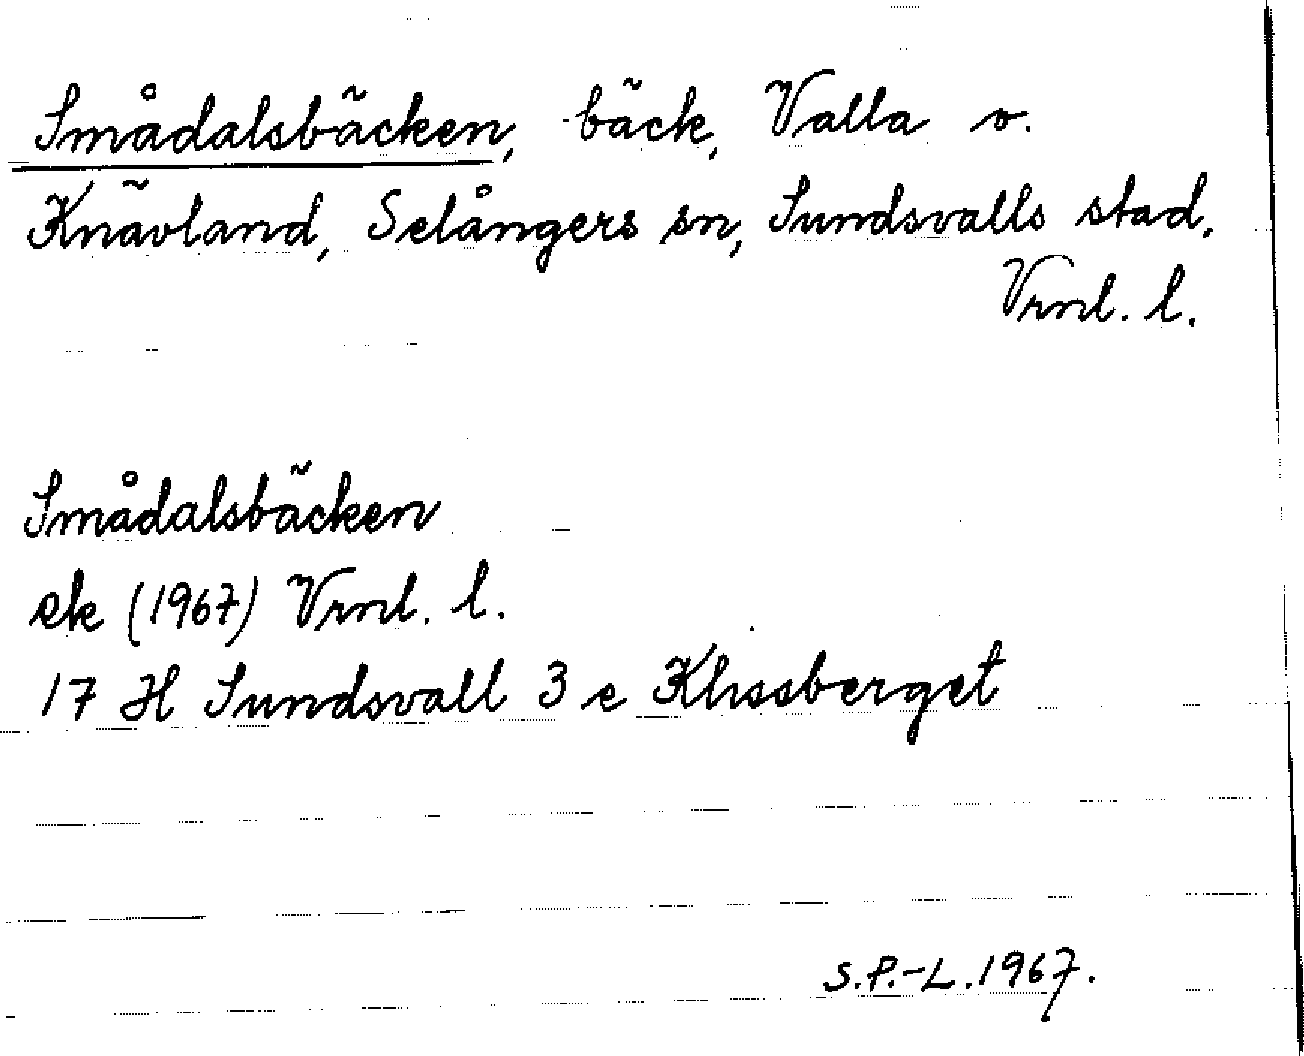 Smådalsbäcken, bäck, Valla o.
Knävland, Selångers sn, Sundsvalls stad,
Vrnl. l.
Smådalsbäcken
ek (1967) Vrnl. l.
17 H Sundsvall 3 e Klissberget
S.P.-L. 1967.